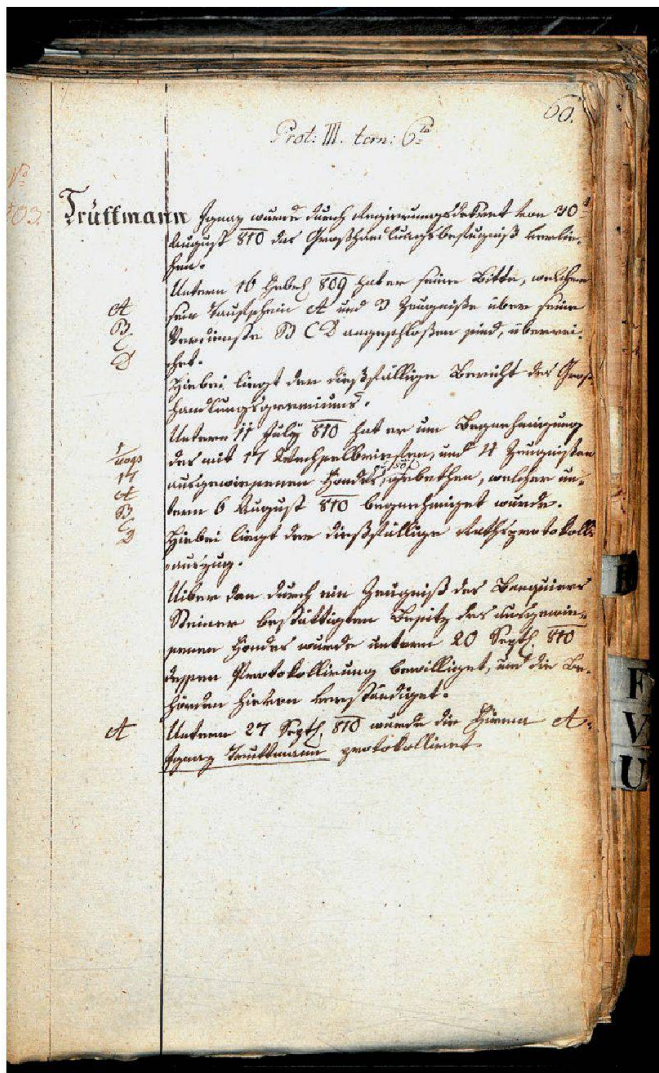 60.
Prot: III. tom: 6ta
No
103.
Trüttmann Ignaz wurde durch Regierungsdekret von 30t
August 810 das Großhandlungsbefugniß verlie-
hen.
Untern 16 Feber 809 hat er seine Bitte, welcher
A
sein Taufschein A und 3 Zeugniße über seine
B
Verdienste B C D angeschloßen sind, überrei-
C
chet.
D
Hiebei liegt der dießfällige Bericht des Groß-
handlungsgremiums.
Untern 11 July 810 hat er um Begnehmigung
1
des mit 17 Wechselbriefen, und 4 Zeugnißen
17
ausgewiesenen Fondes gebethen, welcher un-
A
B
tern 6 August 810 begnehmiget wurde.
C
D
Hiebei liegt der dießfällige Rathsprotokolls
auszug.
Uiber den durch ein Zeugniß des Banquiers
Steiner bestättigten Besitz des ausgewie-
senen Fondes wurde untern 20 Septb 810
dessen Protokollirung bewilliget, und die Be-
hörden hievon verständiget.
A
Untern 27 Septb. 810 wurde die Firma A.
Ignaz Truttmann protokolliret
F
V
U